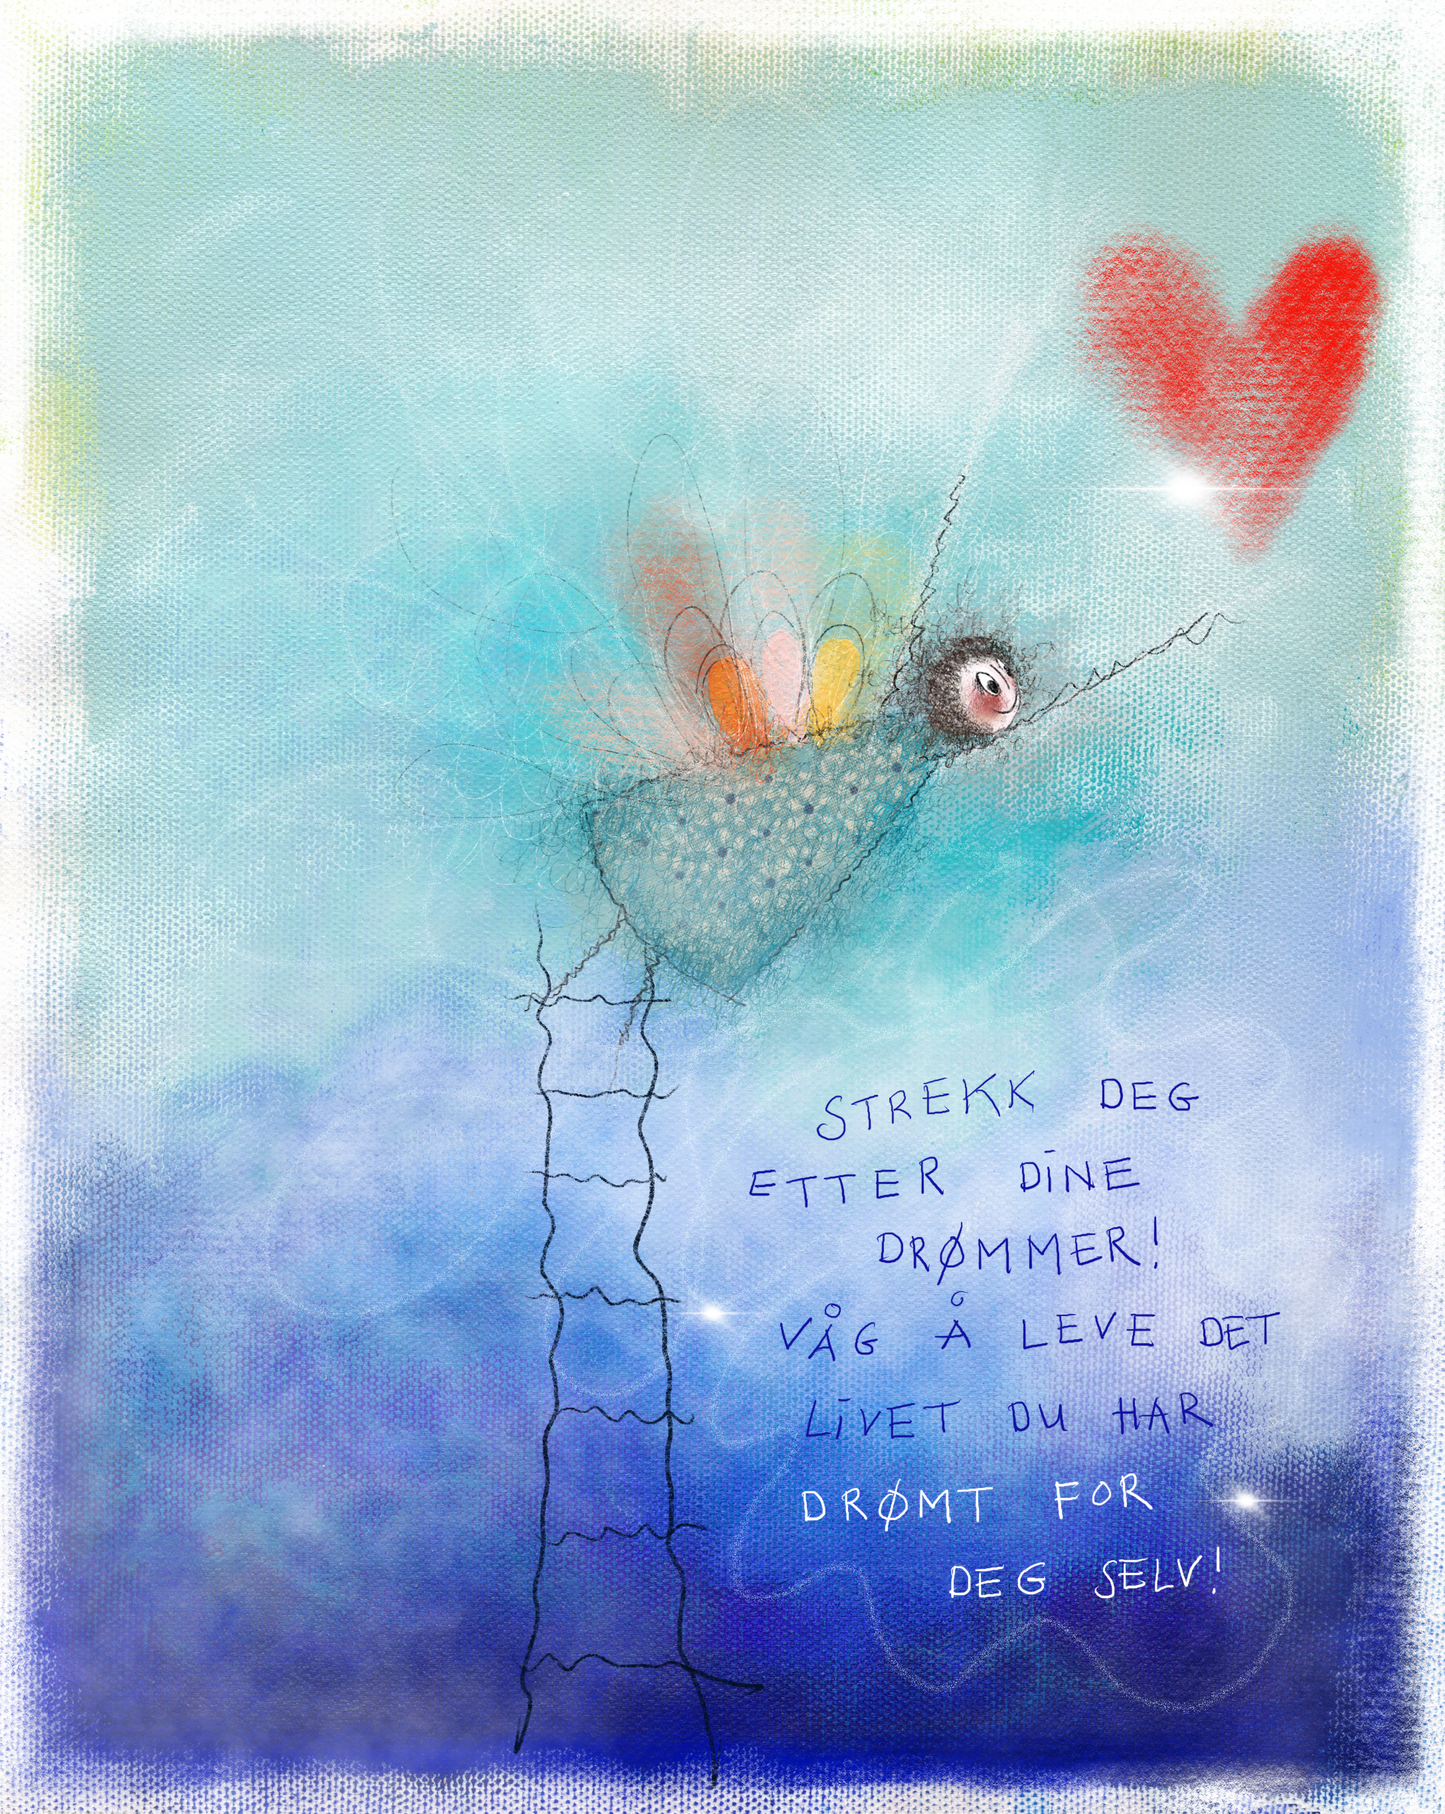 STREKK DEG
ETTER DINE
DRØMMER!
VÅG Å LEVE DET
LIVET DU HAR
DRØMT FOR
DEG SELV!